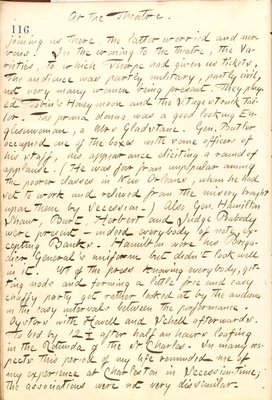 At the Theatre.
116
joining us there, the latter worried and ner-
vous. In the evening to the theatre, the Va-
rieties, to which Thorpe had given us tickets.
The audience was partly military, partly civil,
not very many women being present. They play-
ed Tobin's Honeymoon and the Stage struck tai-
lor. The prima donna was a good looking En-
glishwoman, a Mrs Gladstane. Gen. Butler
occupied one of the boxes with some officers of
his staff, his appearance eliciting a round of
applause. (He was far from unpopular among
the poorer classes in New Orleans whom he had
set to work and relieved from the misery brought
upon them by Secession.) Also Gen. Hamilton
Shaw, Burt, Herbert and Judge Peabody
were present — indeed everybody of note, ex-
cepting Banks. Hamilton wore his Briga-
dier General's uniform but didn't look well
in it. We of the press knowing everybody, get-
ting nods and forming a little free and easy
chaffy party got rather looked at by the audience
in the easy intervals between the performance.
Oysters with Howell and Schell afterwards.
To bed by 12½ after half an hours loafing
in the Rotunda of the St Charles. In many res-
pects this period of my life reminded me of
my experience at Charleston in Secession-time;
the associations were not very dissimilar.